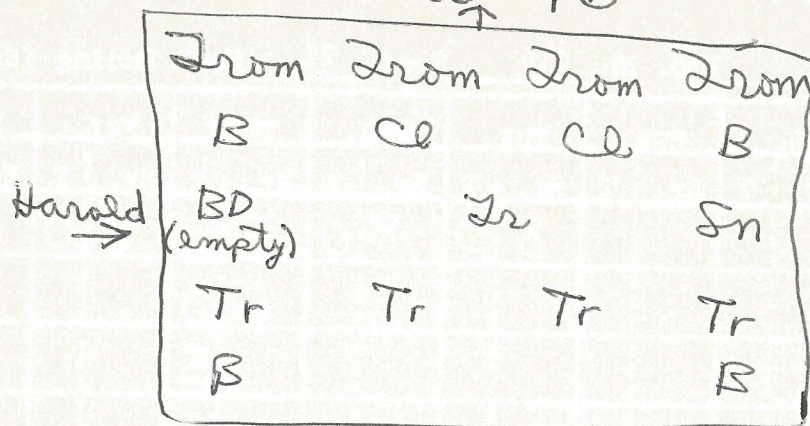 Trom Trom Trom Trom
B Cl Cl B
Harold BD Tr Sn
(empty)
Tr Tr Tr Tr
B B